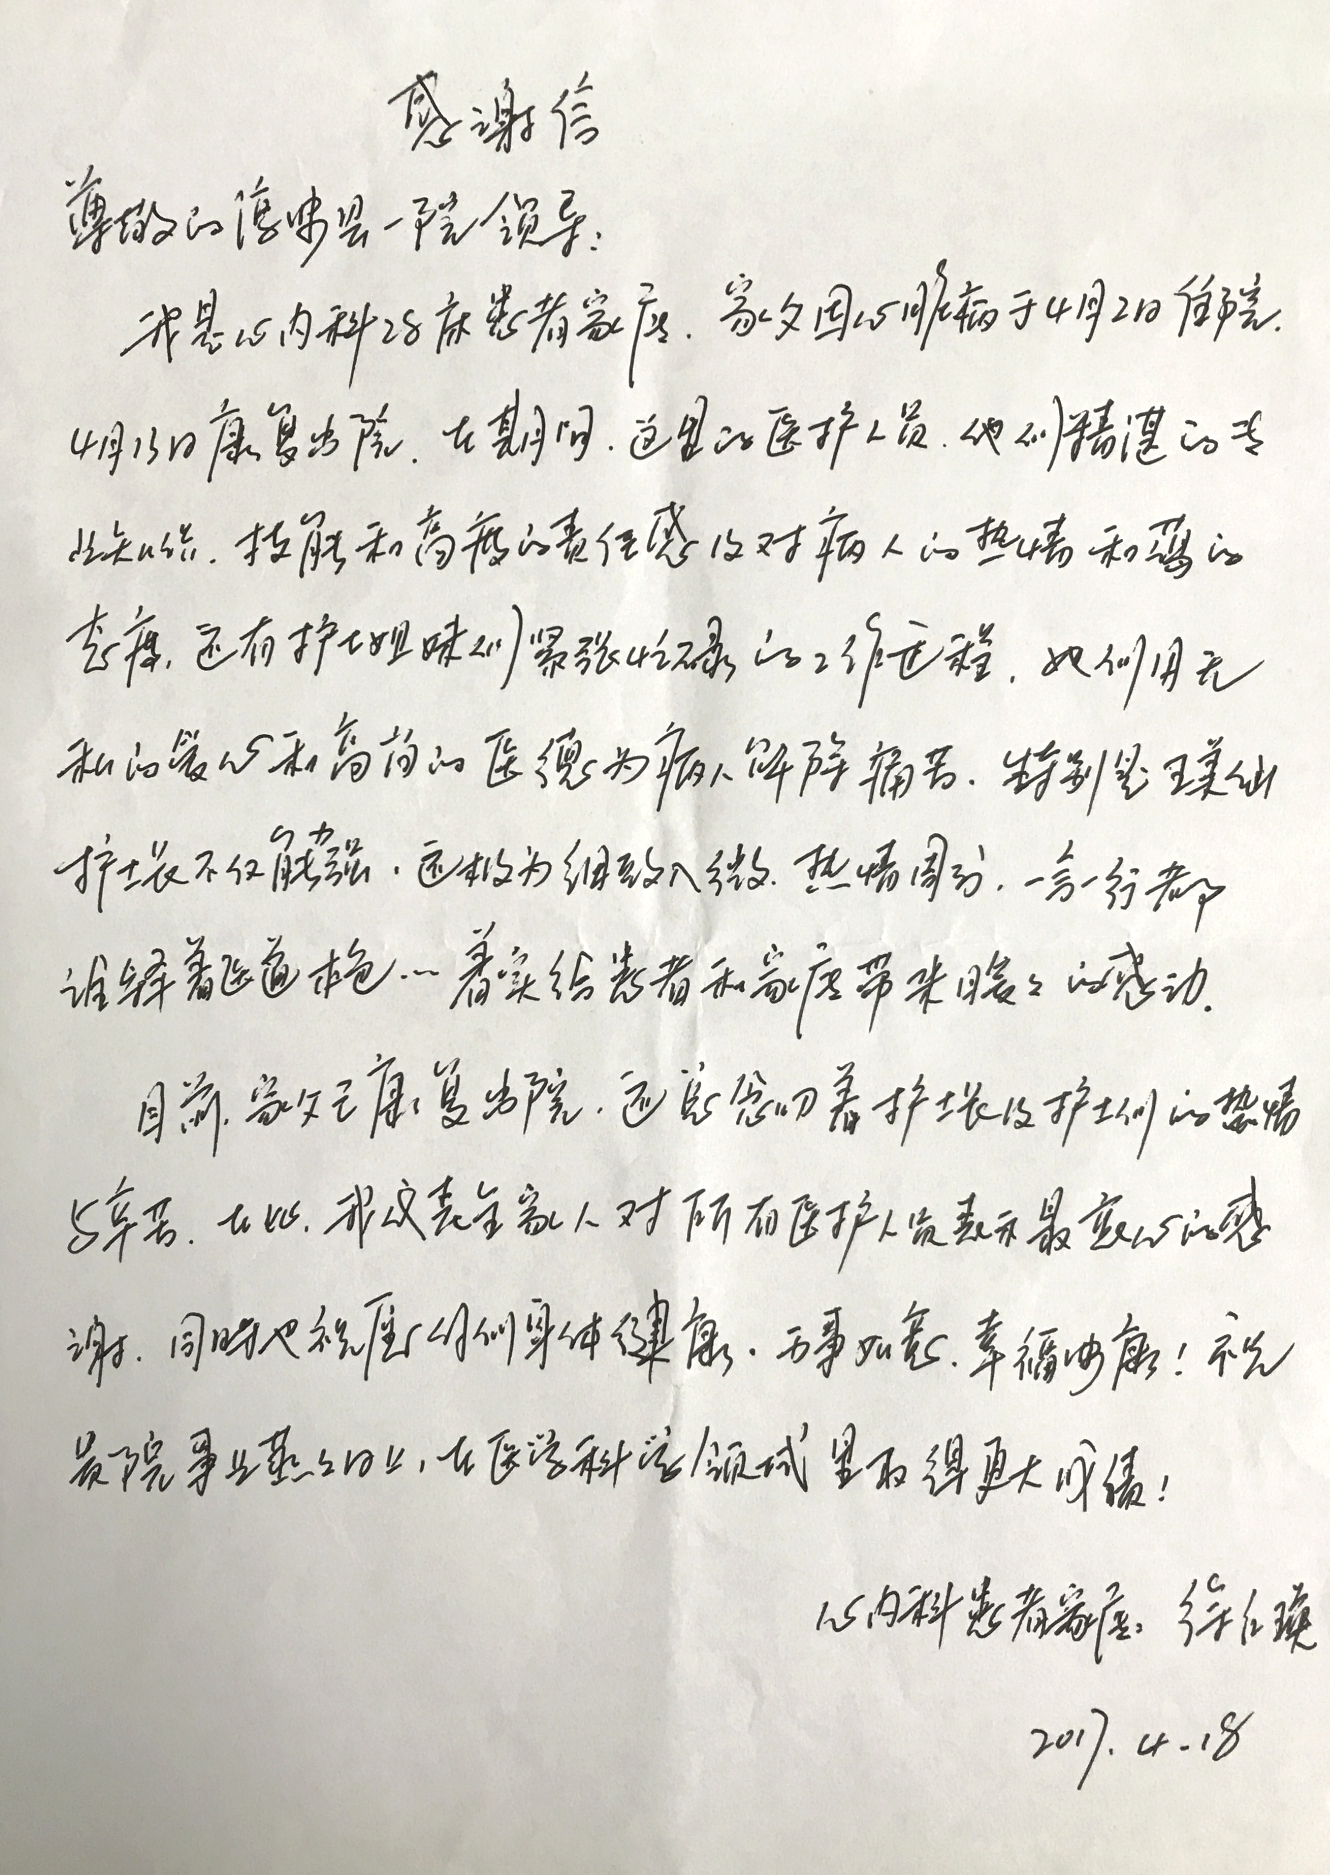 感谢信
尊敬的淳安县一院领导:
我是心内科28床患者家属.家父因心脏病于4月2日住院.
4月13日康复出院.在期间.这里的医护人员.他们精湛的专
业知识.技能和高度的责任感及对病人的热情和蔼的
态度.还有护士姐妹们紧张忙碌的工作过程.她们用无
私的爱心和高尚的医德为病人解除痛苦.特别是王美仙
护士长不仅能力强.还极为细致入微.热情周到.一言一行都
诠释着医道本色…着实给患者和家属带来暖暖的感动.
目前.家父已康复出院.还总念叨着护士长及护士们的热情
与辛苦.在此.我代表全家人对所有医护人员表示最衷心的感
谢.同时也祝愿你们身体健康.万事如意.幸福安康!祝
贵院事业蒸蒸日上,在医学科学领域里取得更大成绩!
心内科患者家属:徐红
2017.4.18